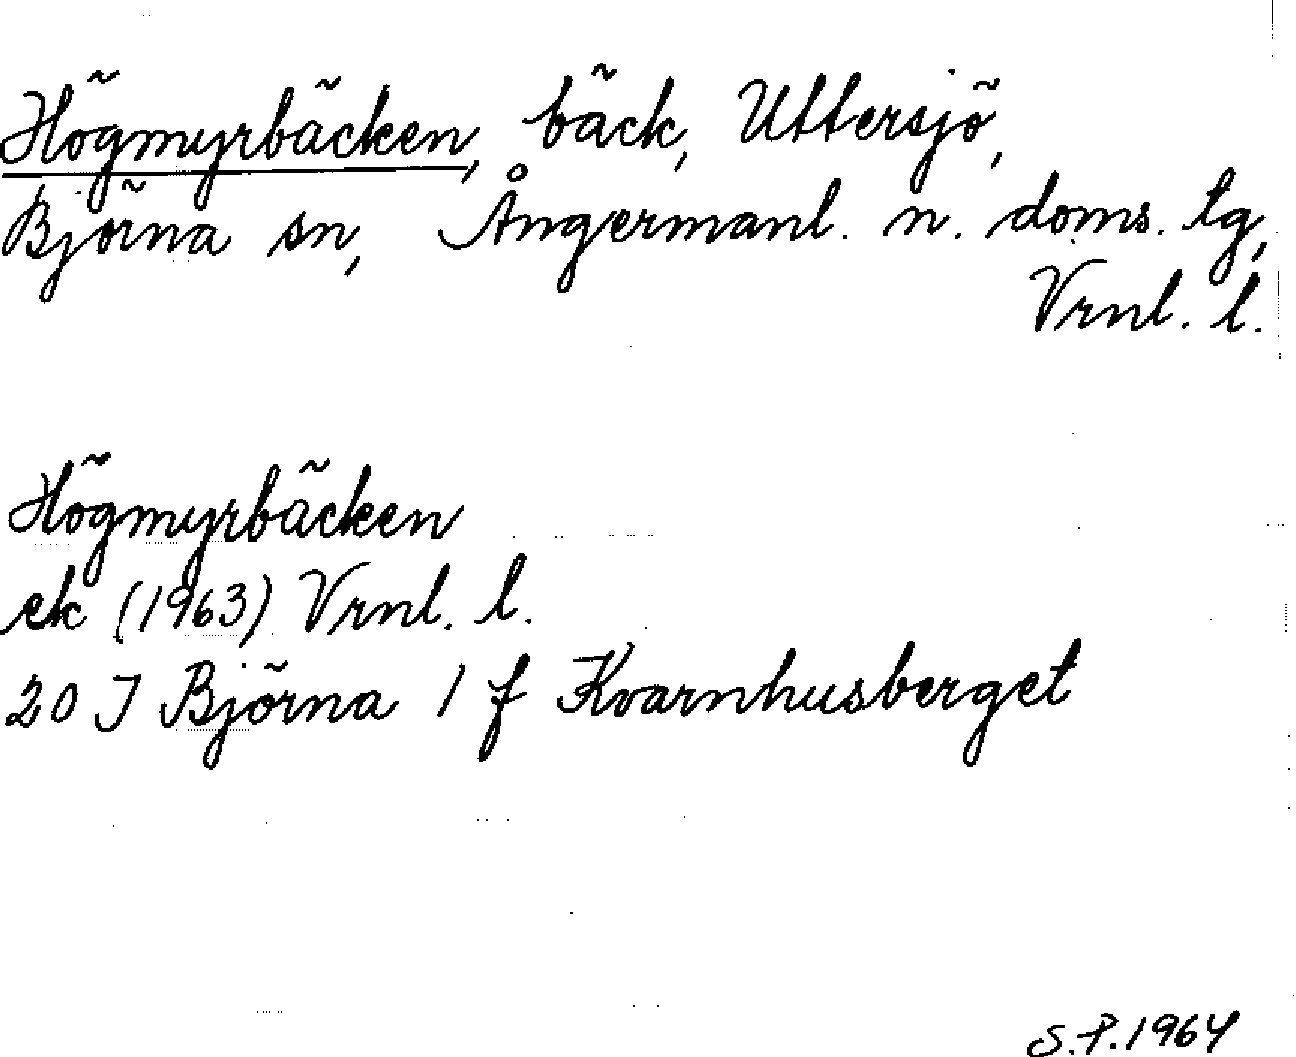 Högmyrbäcken, bäck, Uttersjö,
Björna sn, Ångermanl. n. doms. tg,
Vrnl. l.
Högmyrbäcken
ek (1963) Vrnl. l.
20 J Björna 1 f Kvarnhusberget
S.P. 1964